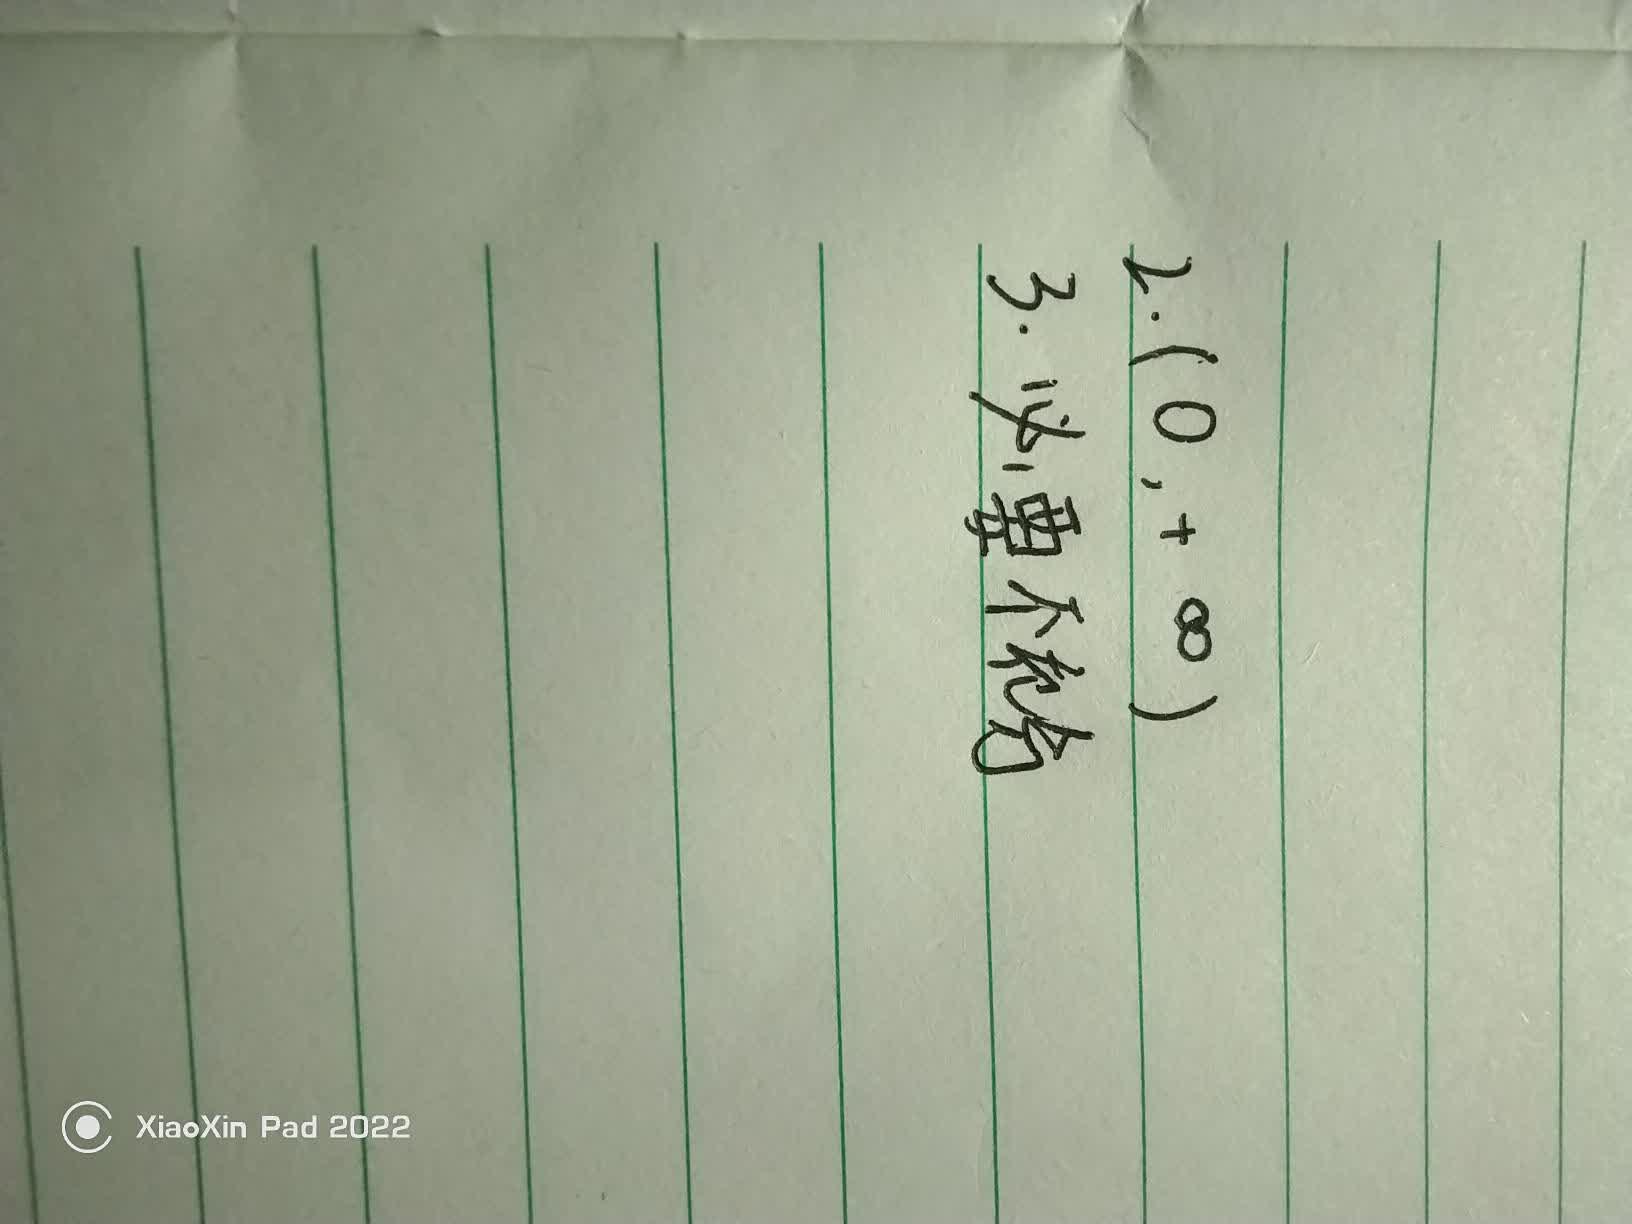 2.(0,+∞)
3.必要不充分
XiaoXin Pad 2022